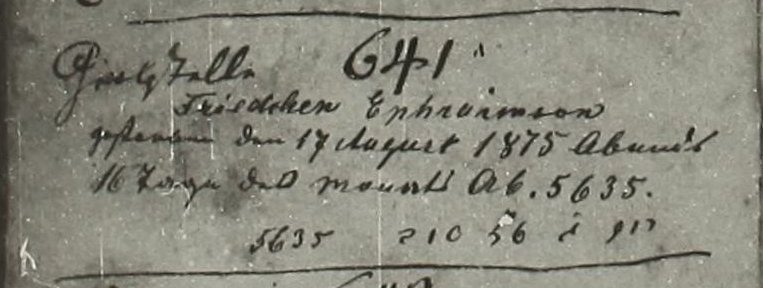 641
Friedchen Ephraimson
gestorben den 17 August 1875 Abends
16 Tage des Monats Ab. 5635.
5635